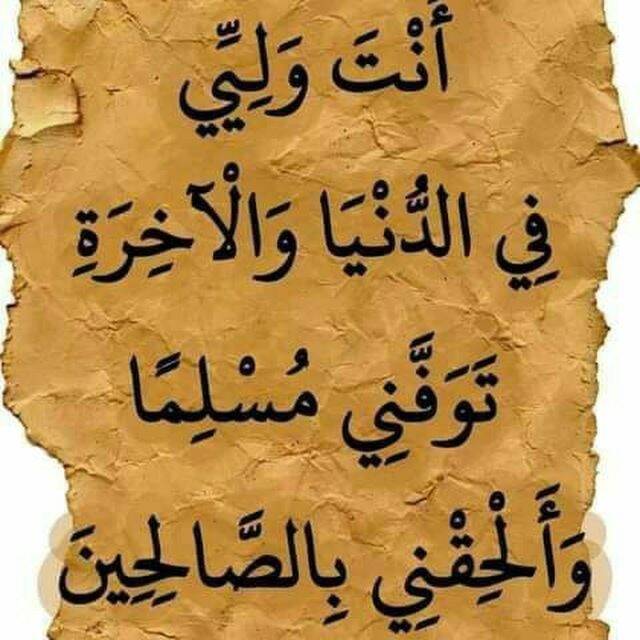 أَنْتَ وَلِيِّي
فِي الدُّنْيَا وَالْآخِرَةِ
تَوَفَّنِي مُسْلِمًا
وَأَلْحِقْنِي بِالصَّالِحِينَ